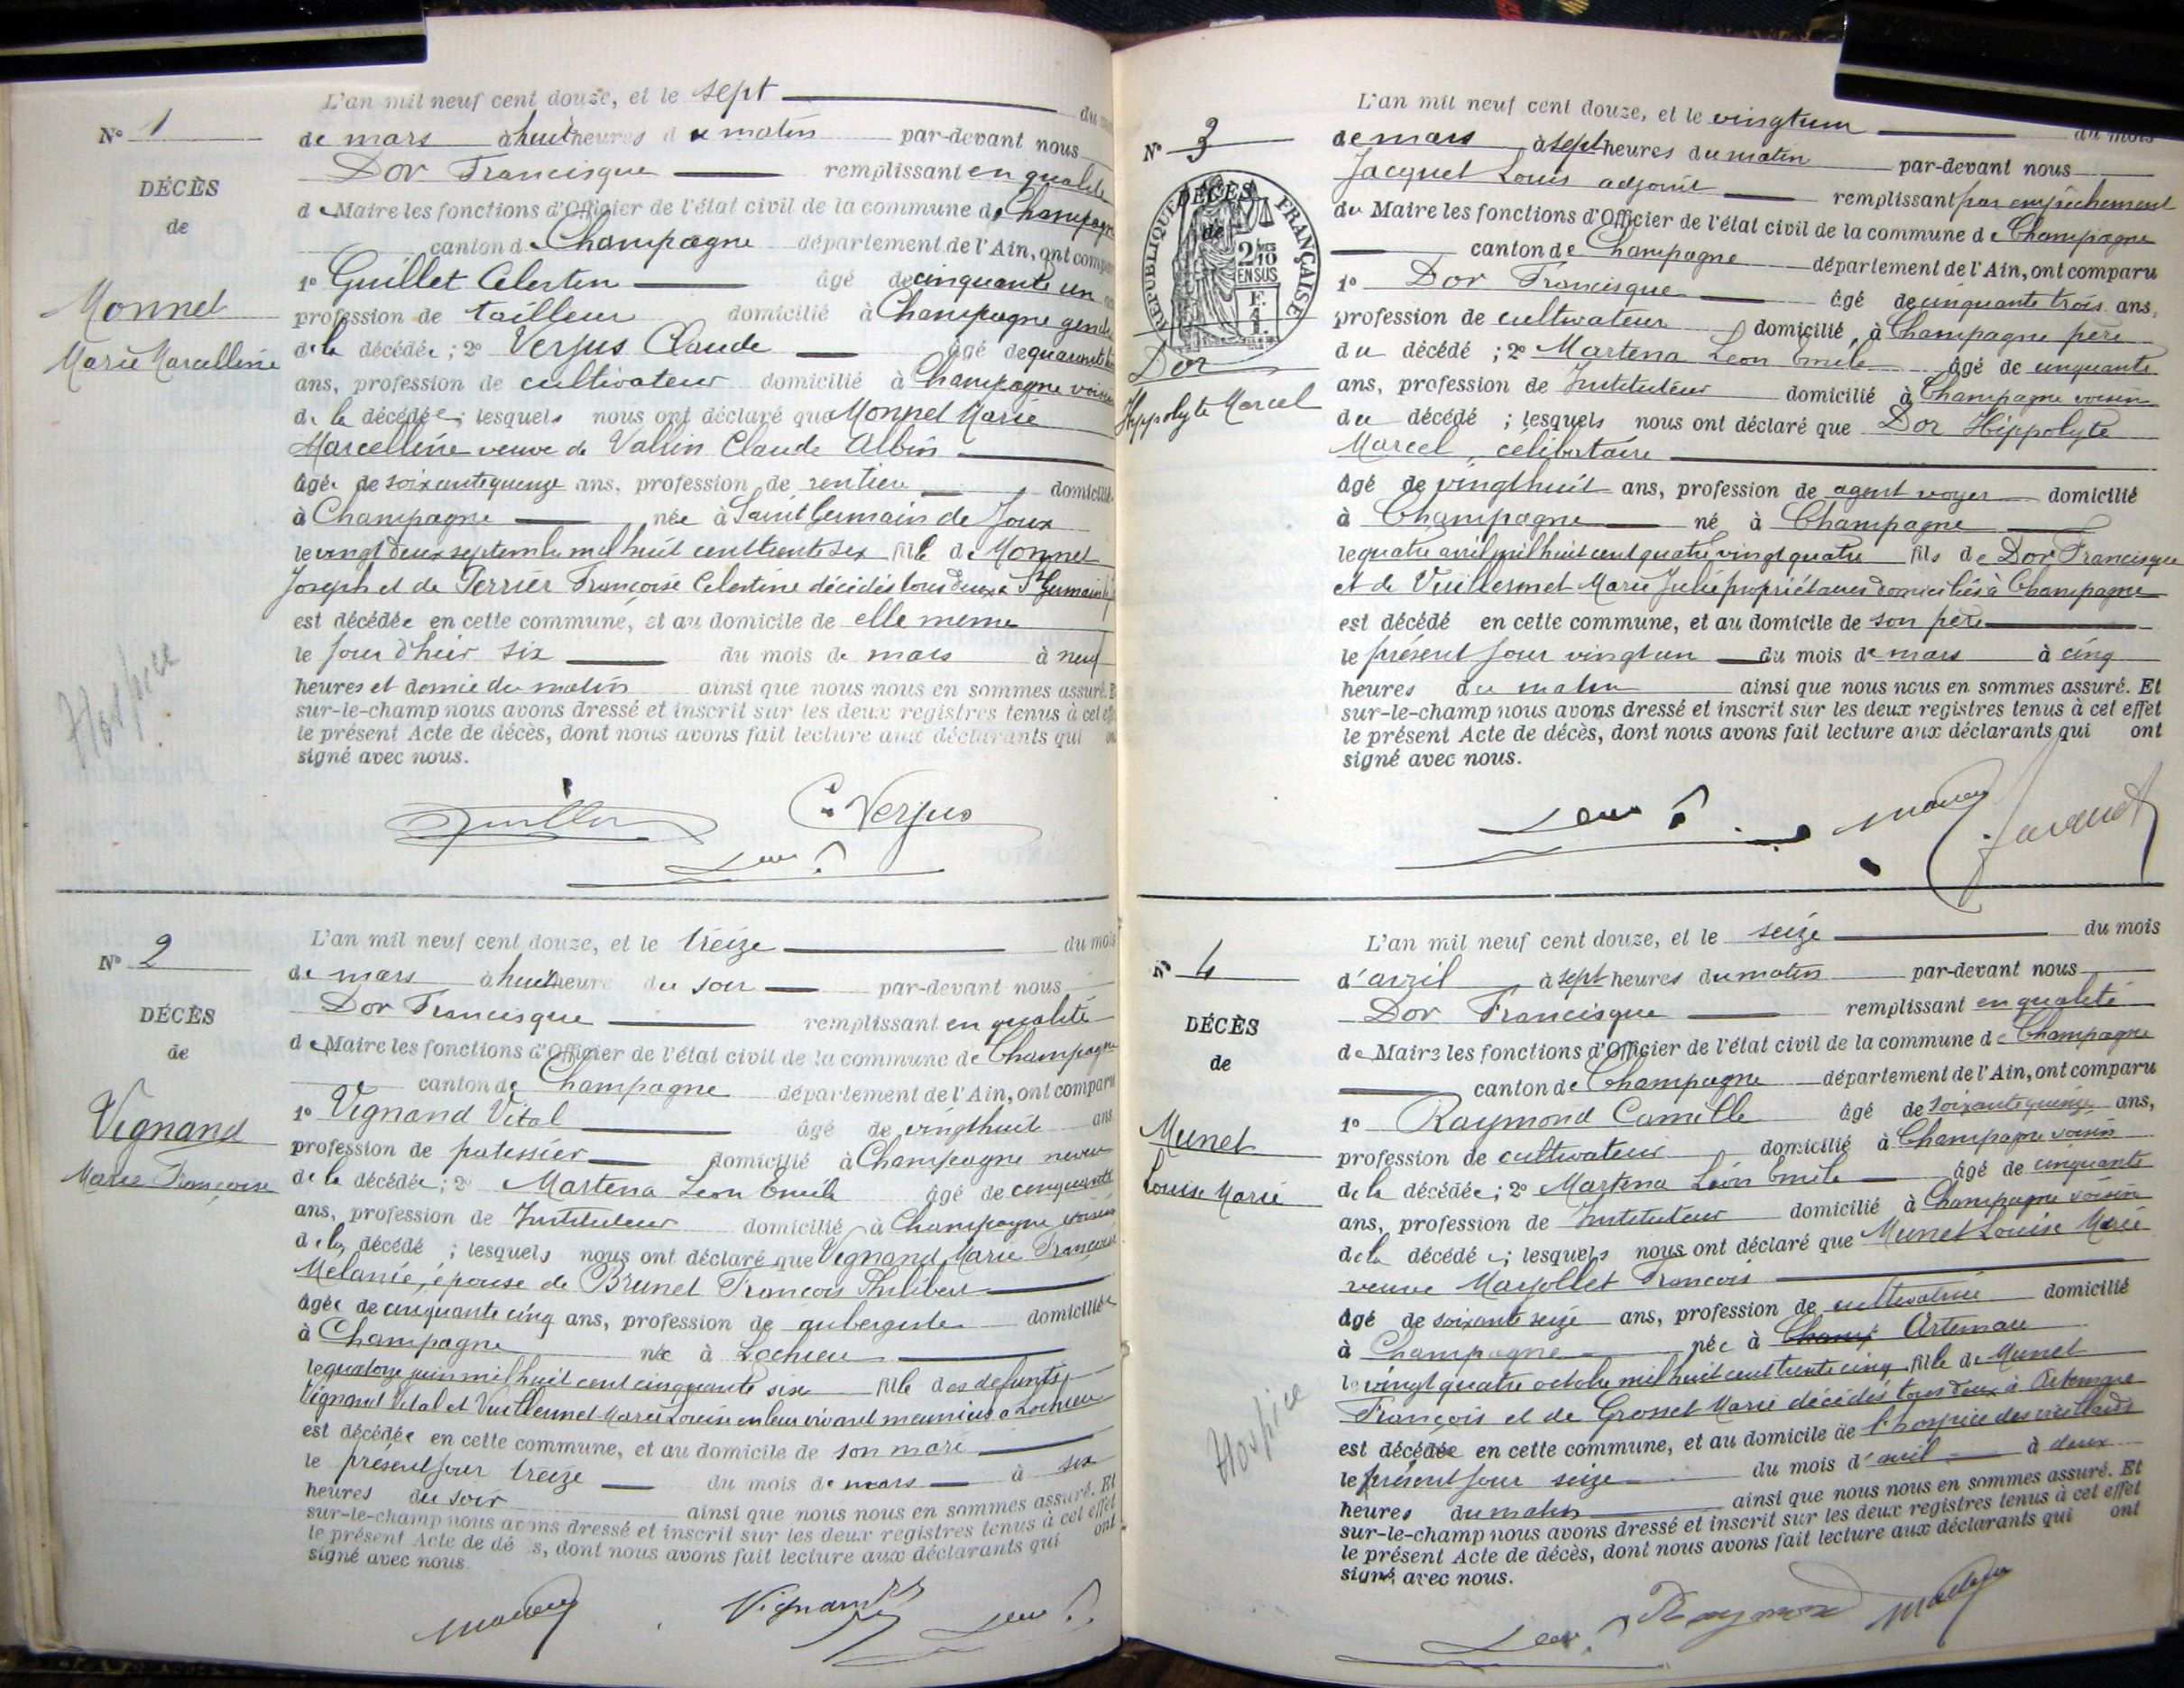 L'an mil neuf cent douze, et le sept du
N° 1
de mars à huit heures du matin par-devant nous
Dor Francisque remplissant en qualité
DÉCÈS
de Maire les fonctions d'Officier de l'état civil de la commune de Champagne
de
canton de Champagne département de l'Ain, ont comparu
1° Guillet Celestin âgé de cinquante un
Monnet
profession de tailleur domicilié à Champagne gendre
Marie Marcelline
de la décédée ; 2° Verjus Claude âgé de
ans, profession de cultivateur domicilié à Champagne voisin
de la décédée ; lesquels nous ont déclaré que Monnet Marie
Marcelline veuve de Vallin Claude Albin
âgée de soixante quinze ans, profession de domiciliée
à Champagne née à Saint Germain de Joux
le vingt deux septembre mil huit cent trente six fille de Monnet
Joseph et de Perrier Françoise Celestine décédés tous deux à St Germain
est décédée en cette commune, et au domicile de elle meme
le jour d'hier six du mois de mars à neuf
heures et demie du matin ainsi que nous nous en sommes assuré. Et
sur-le-champ nous avons dressé et inscrit sur les deux registres tenus à cet effet
le présent Acte de décès, dont nous avons fait lecture aux déclarants qui ont
signé avec nous.
Hospice
Guillet
C. Verjus
L'an mil neuf cent douze, et le treize du mois
N° 2
de mars à huit heures du soir par-devant nous
Dor Francisque remplissant en qualité
DÉCÈS
de Maire les fonctions d'Officier de l'état civil de la commune de Champagne
de
canton de Champagne département de l'Ain, ont comparu
1° Vignand Vital âgé de vingt huit ans
Vignand
profession de patissier domicilié à Champagne neveu
Marie Françoise
de la décédée ; 2° Martena Leon Emile âgé de cinquante
ans, profession de Instituteur domicilié à Champagne voisin
de la décédé ; lesquels nous ont déclaré que Vignand Marie Françoise
Melanie, épouse de Brunet François Philibert
âgée de cinquante cinq ans, profession de aubergiste domiciliée
à Champagne née à Lochieu
le quatorze juin mil huit cent cinquante six fille des defunts
Vignand Vital et Vuillermet Marie Louise en leur vivant meuniers à Lochieu
est décédée en cette commune, et au domicile de son mari
le présent jour treize du mois de mars à six
heures du soir ainsi que nous nous en sommes assuré. Et
sur-le-champ nous avons dressé et inscrit sur les deux registres tenus à cet effet
le présent Acte de dé s, dont nous avons fait lecture aux déclarants qui ont
signé avec nous
Vignand
L'an mil neuf cent douze, et le vingt un du mois
N° 3
de mars à sept heures du matin par-devant nous
Jacquet Louis adjoint remplissant par empêchement
DÉCÈS
du Maire les fonctions d'Officier de l'état civil de la commune de Champagne
de
RÉPUBLIQUE FRANÇAISE
2/10 EN SUS
canton de Champagne département de l'Ain, ont comparu
1° Dor Francisque âgé de cinquante trois ans,
profession de cultivateur domicilié, à Champagne père
Dor
du décédé ; 2° Martena Leon Emile âgé de cinquante
Hippolyte Marcel
ans, profession de Instituteur domicilié à Champagne voisin
du décédé ; lesquels nous ont déclaré que Dor Hippolyte
Marcel, celibataire
âgé de vingt huit ans, profession de agent voyer domicilié
à Champagne né à Champagne
le quatre avril mil huit cent quatre vingt quatre fils de Dor Francisque
et de Vuillermet Marie Julie propriétaires domiciliés à Champagne
est décédé en cette commune, et au domicile de son père
le présent jour vingt un du mois de mars à cinq
heures du matin ainsi que nous nous en sommes assuré. Et
sur-le-champ nous avons dressé et inscrit sur les deux registres tenus à cet effet
le présent Acte de décès, dont nous avons fait lecture aux déclarants qui ont
signé avec nous.
Jacquet
L'an mil neuf cent douze, et le seize du mois
N° 4
d'avril à sept heures du matin par-devant nous
Dor Francisque remplissant en qualité
DÉCÈS
de Maire les fonctions d'Officier de l'état civil de la commune de Champagne
de
canton de Champagne département de l'Ain, ont comparu
1° Raymond Camille âgé de soixante quinze ans,
Munet
profession de cultivateur domicilié à Champagne voisin
Louise Marie
de la décédée ; 2° Martena Léon Emile âgé de cinquante
ans, profession de Instituteur domicilié à Champagne voisin
de la décédée ; lesquels nous ont déclaré que Munet Louise Marie
veuve Marjollet François
âgé de soixante seize ans, profession de cultivatrice domicilié
à Champagne née à Champ Artemare
le vingt quatre octobre mil huit cent trente cinq fille de Munet
François et de Grosset Marie décédés tous deux à Artemare
est décédée en cette commune, et au domicile de l'hospice des vieillards
le présent jour seize du mois d'avril à deux
heures du matin ainsi que nous nous en sommes assuré. Et
sur-le-champ nous avons dressé et inscrit sur les deux registres tenus à cet effet
le présent Acte de décès, dont nous avons fait lecture aux déclarants qui ont
signé avec nous.
Hospice
Raymond